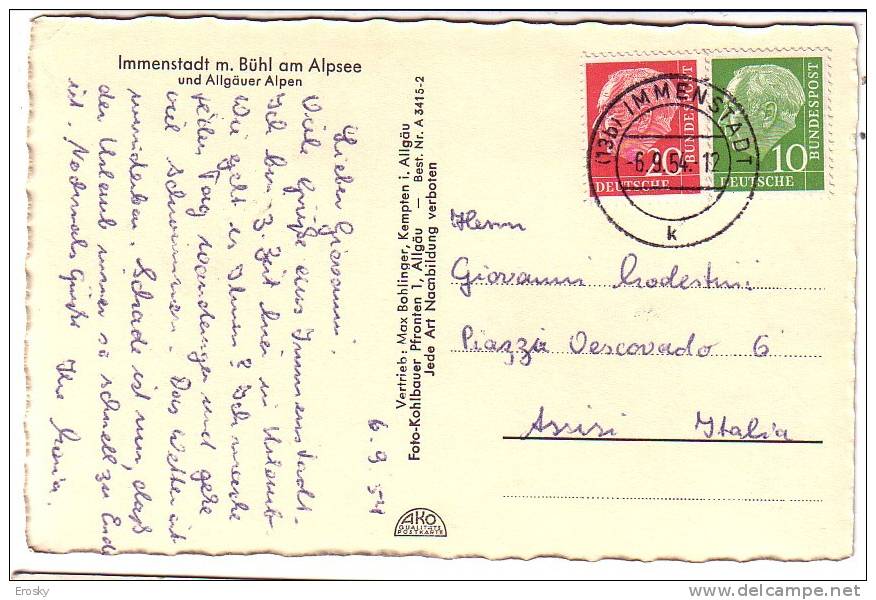 Immenstadt m. Bühl am Alpsee
und Allgäuer Alpen
6. 9. 54
Lieber Giovanni!
Viele Grüße aus Immenstadt.
Ich bin z. Zeit hier in Urlaub.
Wie geht es Ihnen? Ich mache
jeden Tag Wanderungen und gehe
viel schwimmen. Das Wetter ist
wunderbar. Schade ist nur, daß
der Urlaub immer so schnell zu Ende
ist. Nochmals Grüße Ihre Maria.
Vertrieb: Max Bohlinger, Kempten i. Allgäu
Foto-Kohlbauer Pfronten 1, Allgäu — Best. Nr. A 3415-2
Jede Art Nachbildung verboten
AKO
QUALITÄTS
POSTKARTE
20
DEUTSCHE
BUNDESPOST
10
DEUTSCHE
BUNDESPOST
(13b) IMMENSTADT
-6.9.54. 12
k
Herrn
Giovanni Modestini
Piazza Vescovado 6
Assisi Italia
Erosky
delcampe.net